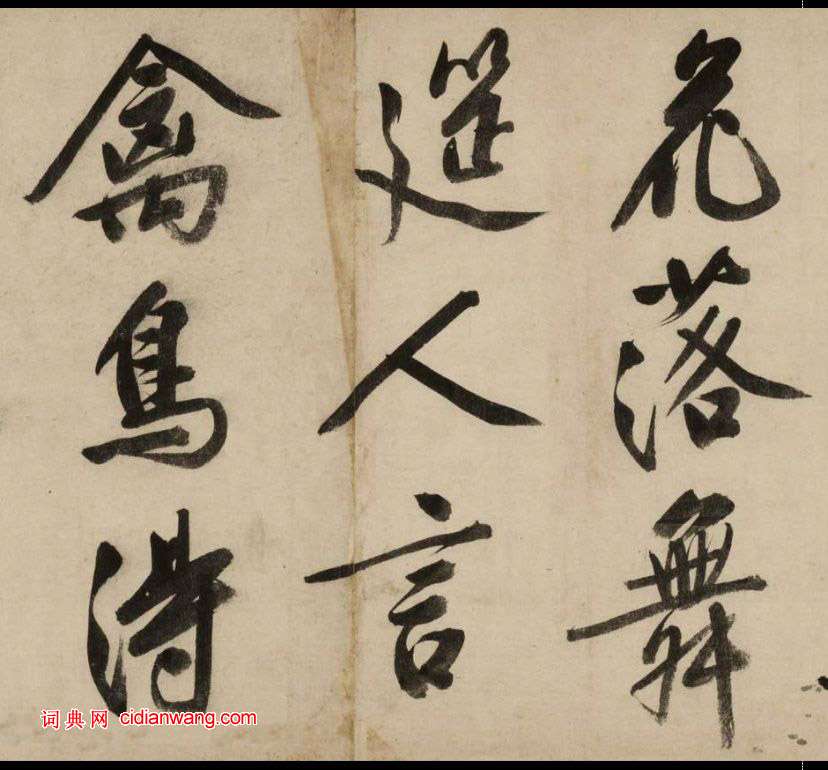 花落舞
筵人言
禽鳥得
词典网 cidianwang.com